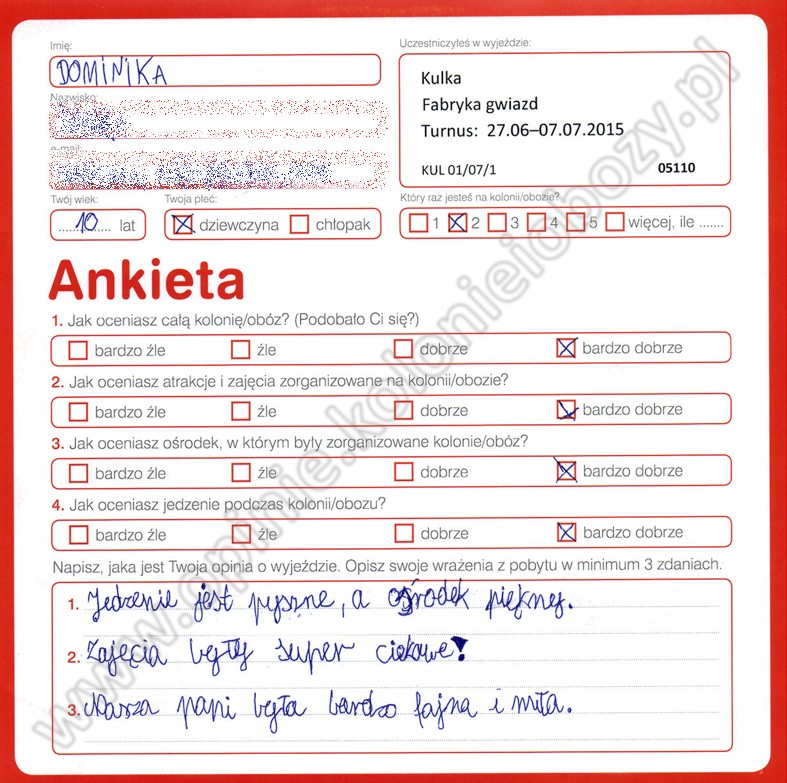 Imię:
DOMINIKA
Nazwisko
e-mail:
Twój wiek:
10 lat
Twoja płeć:
dziewczyna chłopak
Uczestniczyłeś w wyjeździe:
Kulka
Fabryka gwiazd
Turnus: 27.06–07.07.2015
KUL 01/07/1 05110
Który raz jesteś na kolonii/obozie?
1 2 3 4 5 więcej, ile .......
Ankieta
1. Jak oceniasz całą kolonię/obóz? (Podobało Ci się?)
bardzo źle źle dobrze bardzo dobrze
2. Jak oceniasz atrakcje i zajęcia zorganizowane na kolonii/obozie?
bardzo źle źle dobrze bardzo dobrze
3. Jak oceniasz ośrodek, w którym były zorganizowane kolonie/obóz?
bardzo źle źle dobrze bardzo dobrze
4. Jak oceniasz jedzenie podczas kolonii/obozu?
bardzo źle źle dobrze bardzo dobrze
Napisz, jaka jest Twoja opinia o wyjeździe. Opisz swoje wrażenia z pobytu w minimum 3 zdaniach.
1. Jedzenie jest pyszne, a ośrodek piękny.
2. Zajęcia były super ciekawe!
3. Nasza pani była bardzo fajna i miła.
www.opinie.kolonieiobozy.pl